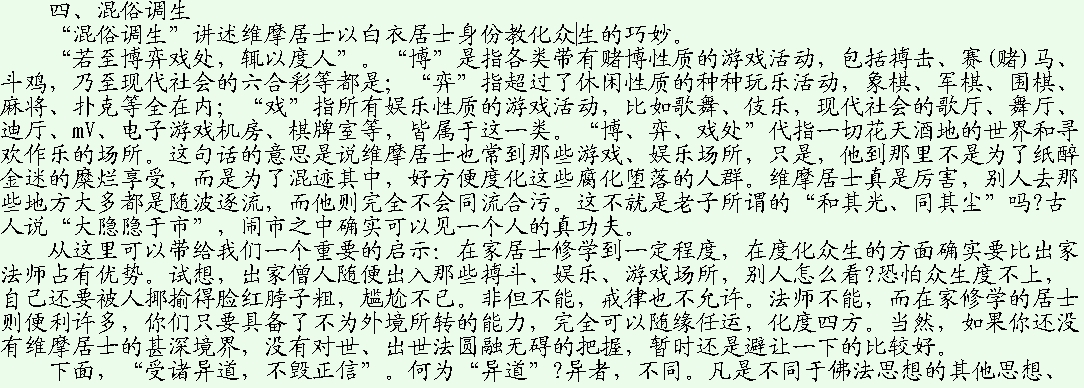 四、混俗调生
“混俗调生”讲述维摩居士以白衣居士身份教化众生的巧妙。
“若至博弈戏处，辄以度人”。“博”是指各类带有赌博性质的游戏活动，包括搏击、赛(赌)马、
斗鸡，乃至现代社会的六合彩等都是；“弈”指超过了休闲性质的种种玩乐活动，象棋、军棋、围棋、
麻将、扑克等全在内；“戏”指所有娱乐性质的游戏活动，比如歌舞、伎乐，现代社会的歌厅、舞厅、
迪厅、mV、电子游戏机房、棋牌室等，皆属于这一类。“博、弈、戏处”代指一切花天酒地的世界和寻
欢作乐的场所。这句话的意思是说维摩居士也常到那些游戏、娱乐场所，只是，他到那里不是为了纸醉
金迷的糜烂享受，而是为了混迹其中，好方便度化这些腐化堕落的人群。维摩居士真是厉害，别人去那
些地方大多都是随波逐流，而他则完全不会同流合污。这不就是老子所谓的“和其光、同其尘”吗?古
人说“大隐隐于市”，闹市之中确实可以见一个人的真功夫。
从这里可以带给我们一个重要的启示：在家居士修学到一定程度，在度化众生的方面确实要比出家
法师占有优势。试想，出家僧人随便出入那些搏斗、娱乐、游戏场所，别人怎么看?恐怕众生度不上，
自己还要被人揶揄得脸红脖子粗，尴尬不已。非但不能，戒律也不允许。法师不能，而在家修学的居士
则便利许多，你们只要具备了不为外境所转的能力，完全可以随缘任运，化度四方。当然，如果你还没
有维摩居士的甚深境界，没有对世、出世法圆融无碍的把握，暂时还是避让一下的比较好。
下面，“受诸异道，不毁正信”。何为“异道”?异者，不同。凡是不同于佛法思想的其他思想、